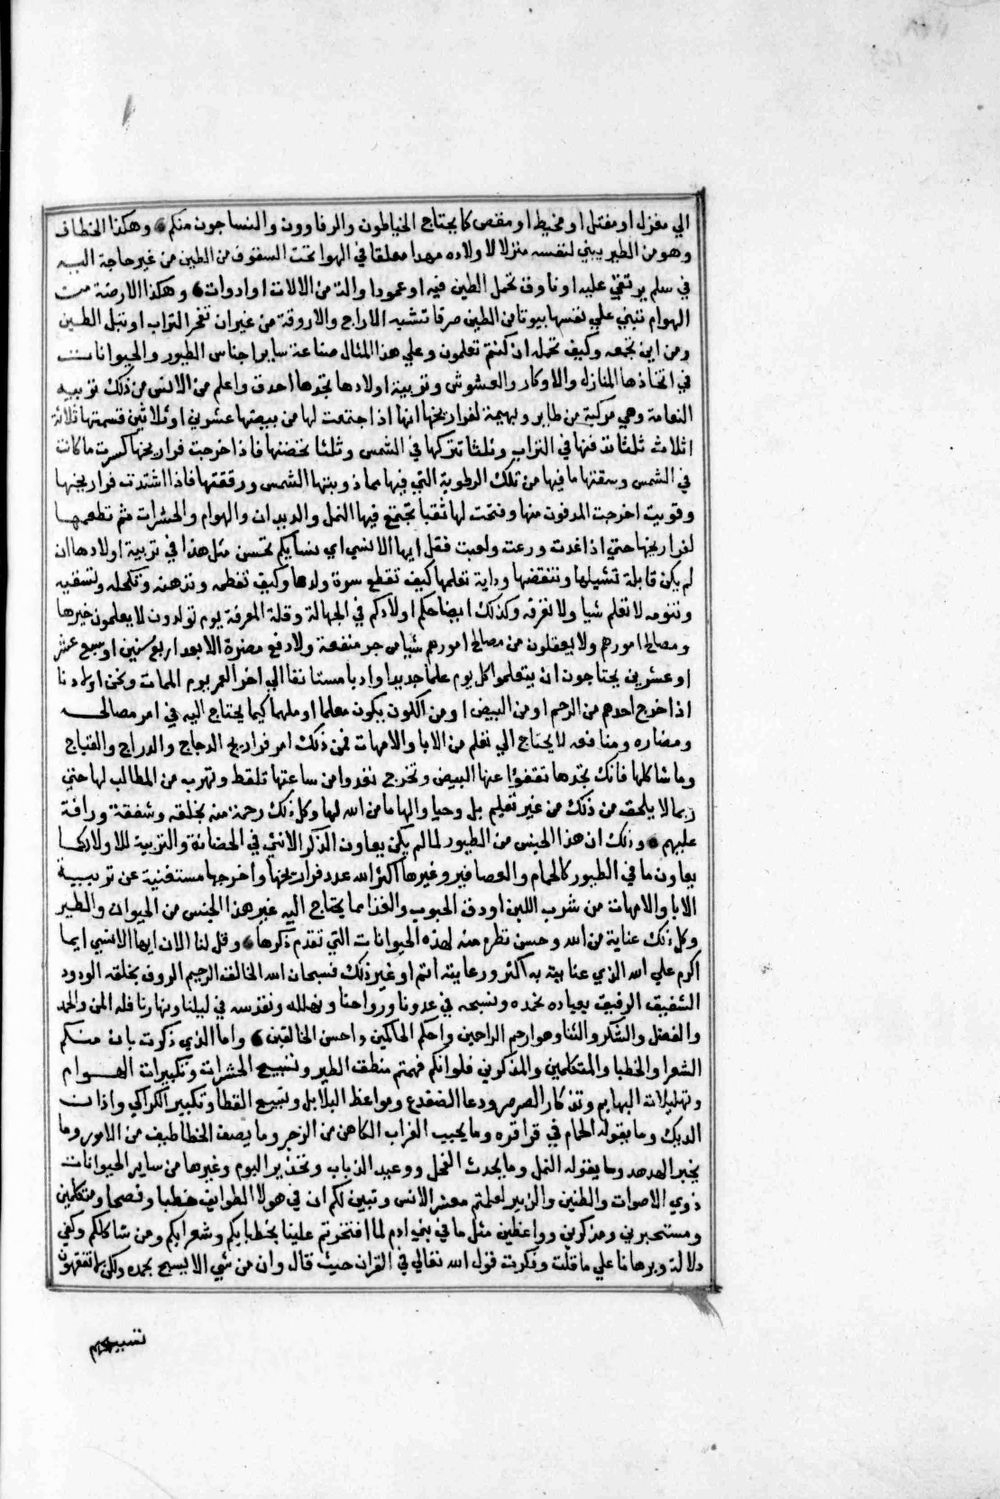 الي مغزل او مفتل او مخيط او مقص كما يحتاج الخياطون والرفاوون والنساجون منكم وهكذا الخطاف
وهو من الطير يبني لنفسه منزلا لاولاده مهدا معلقا في الهوا تحت السقوف من الطين من غير حاجة اليه
في سلم يرتقي عليه او ناوق تحمل الطين فيه او عمود او الة من الالات او ادوات وهكذا الارضة من
الهوام تبني علي نفسها بيوتا من الطين صرفا تشبه الازاج والاروقة من غير ان تحفر التراب او تبل الطين
ومن اين تجمعه وكيف تحمله ان كنتم تعلمون وعلي هذا المثال صناعة ساير اجناس الطيور والحيوانات
في اتخاذها المنازل والاوكار والعشوش وتربية اولادها تجدها احذق واعلم من الانس من ذلك تربية
النعامة وهي مركبة من طاير وبهيمة لفراريخها انها اذا اجتمعت لها من بيضها عشرين او ثلاثين قسمتها ثلاثة
اثلاث ثلثا تدفنها في التراب وثلثا تتركها في الشمس وثلثا تحضنها فاذا خرجت فراريخها كسرت ما كانت
في الشمس وسقتها ما فيها من تلك الرطوبة التي فيها مما ذوبتها الشمس ورققتها فاذا اشتدت فراريخها
وقويت اخرجت المدفون منها وفتحت لها ثقبا يجتمع فيها النمل والديدان والهوام والحشرات ثم تطعمها
لفراريخها حتي اذا غدت ورعت ولعبت فقل ايها الانسي اي نسايكم تحسن مثل هذا في تربية اولادها ان
لم يكن قابلة تشيلها وتنقضها وداية تعلمها كيف تقطع سرة ولدها وكيف تقطمه وتدهنه وتكحله وتسقيه
وتنومه لا تعلم شيا ولا تعرفه وكذلك ايضا حكم اولادكم في الجهالة وقلة المعرفة يوم تولدون لا يعلمون خيرها
ومصالح امورهم ولا يعقلون من مصالح امورهم شيا من جر منفعة ولا دفع مضرة الا بعد اربع سنين او سبع عشر
او عشرين يحتاجون ان يتعلموا كل يوم علما جديدا وادبا مستانفا الي اخر العمر يوم الممات ونحن اولادنا
اذا خرج احدهم من الرحم او من البيض او من الكون يكون معلما او ملهما كيما يحتاج اليه في امر مصالحه
ومضاره ومنافعه لا يحتاج الي تعلم من الابا والامهات فمن ذلك امر فراريخ الدجاج والدراج والقباج
وما شاكلها فانك تجدها تتفقوا عنها البيض وتخرج تغدوا من ساعتها تلقط وتهرب من المطالب لها حتي
ربما لا يلحق من ذلك من غير تعليم بل وحيا والهاما من الله لها وكل ذلك رحمة منه بخلقه وشفقة ورافة
عليهم وذلك ان هذا الجنس من الطيور لما لم يكن يعاون الذكر الانثي في الحضانة والتربية للاولاد كما
يعاون ما في الطيور كالحمام والعصافير وغيرها اكثر الله عدد فراريخها واخرجها مستغنية عن تربيبة
الابا والامهات من شرب اللبن او دق الحبوب والغذا مما يحتاج اليه غير هذا الجنس من الحيوان والطير
وكل ذلك عناية من الله وحسن نظر منه لهذه الحيوانات التي تقدم ذكرها وقل لنا الان ايها الانسي ايما
اكرم علي الله الذي عنايته به اكثر ورعايته اتم او غير ذلك فسبحان الله الخالق الرحيم الروف بخلقه الودود
الشفيق الرفيق بعباده نحمده ونسبحه في غدونا ورواحنا ونهلله ونقدسه في ليلنا ونهارنا فله المن والحمد
والفضل والشكر والثنا وهو ارحم الراحمين واحكم الحاكمين واحسن الخالقين واما الذي ذكرت بان منكم
الشعرا والخطبا والمتكلمين والمذكرين فلو انكم فهمتم منطق الطير وتسبيح الحشرات وتكبيرات الهوام
وتهليلات البهايم وتذكار الصرصر ودعا الضفدع ومواعظ البلابل وتسبيح القطا وتكبير الكراكي واذان
الديك وما يقوله الحمام في قراقره وما يجيب الغراب الكاهن من الزجر وما يصف الخطاطيف من الامور وما
يخبر الهدهد وما يقوله النمل وما يحدث النحل ووعيد الذباب وتحذير البوم وغيرها من ساير الحيوانات
ذوي الاصوات والطنين والزبير لعلمتم معشر الانس وتبين لكم ان في هولا الطوايف خطبا وفصحا ومتكلمين
ومستحبرين ومذكرين وواعظين مثل ما في بني ادم لما افتخرتم علينا بخطبايكم وشعرايكم ومن شاكلكم وكفي
دلالة وبرهانا علي ما قلت وذكرت قول الله تعالي في القران حيث قال وان من شي الا يسبح بحمده ولكن لا تفقهون
تسبيحهم